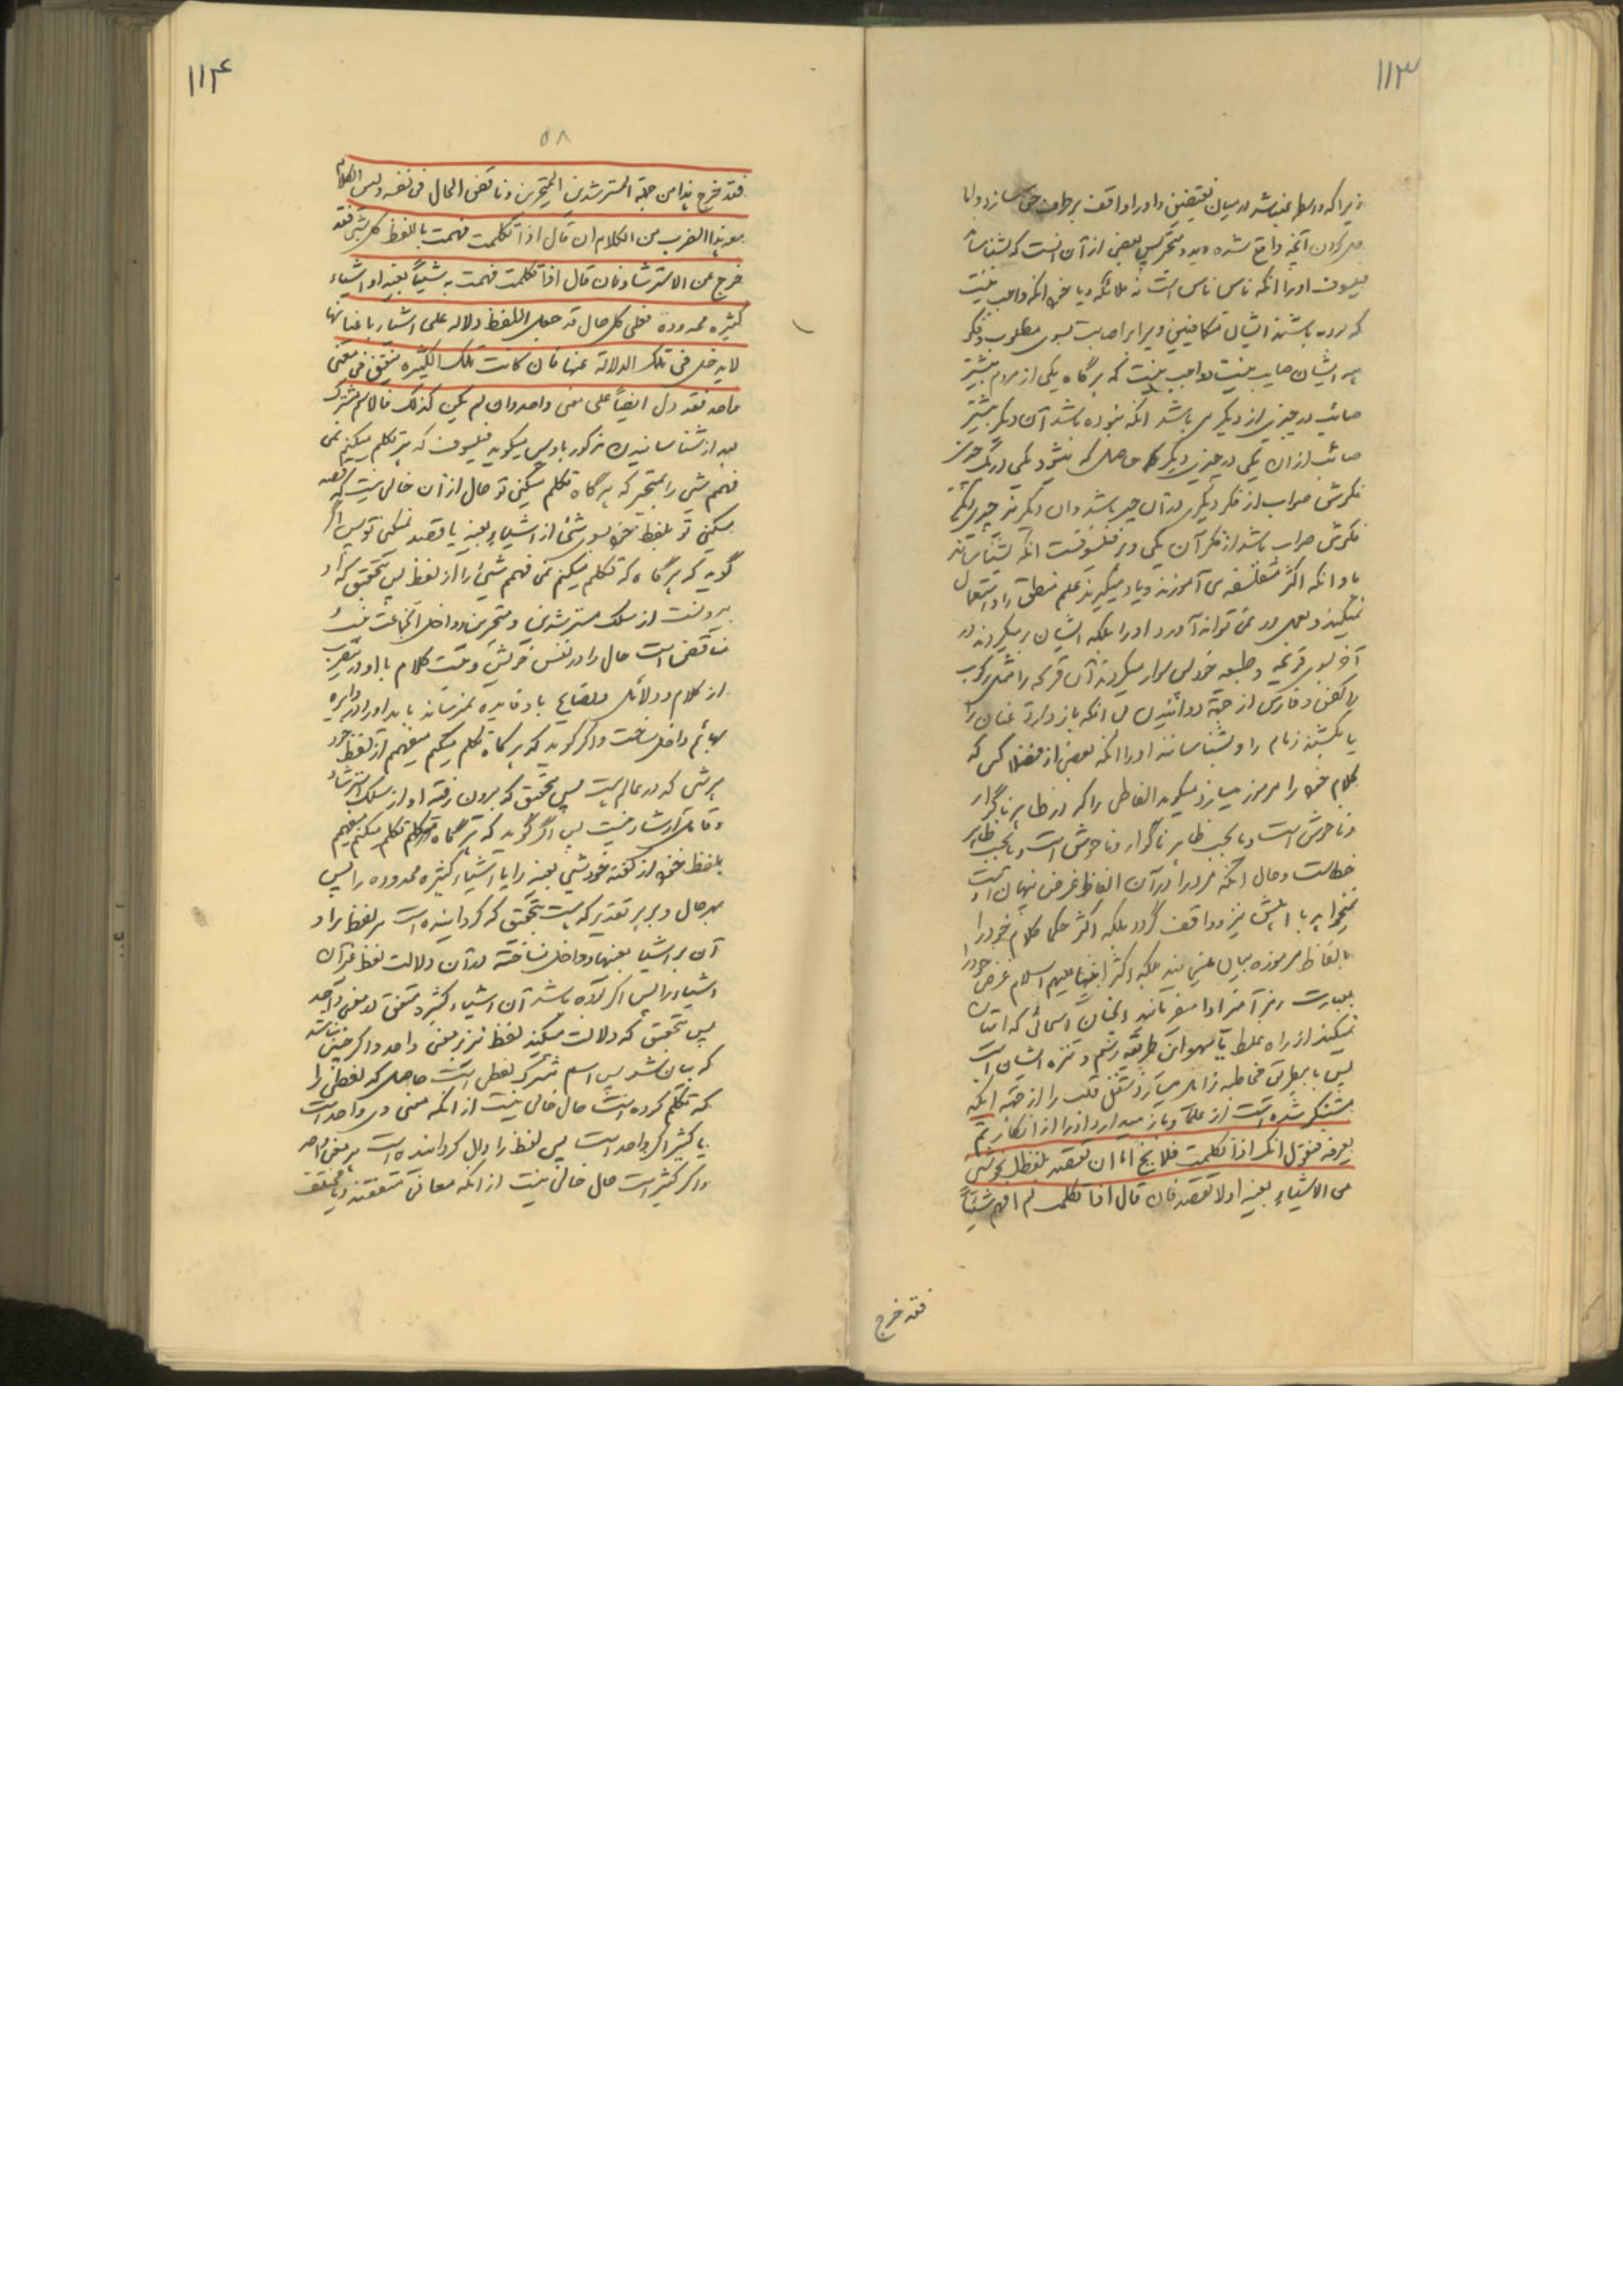 ۱۱۳
زیرا که واسطه نمیباشد در میان نقیضین و او را واقف بر طرف حق سازد و اما
حل کردن آنچه واقع شده دید متحیر پس بعضی از آن آنست که بشناساند
فیلسوف او را آنکه ناس ناس است نه ملائکه و یا خود آنکه واجب نیست
که بوده باشند ایشان متکافیین و برابر اصابت بسوی مطلوب و فکر
همه ایشان صایب نیست و واجب نیست که هرگاه یکی از مردم بیشتر
صائب در چیزی از دیگری باشد آنکه نبوده باشد آن دیگر بیشتر
صائب از آن یکی در چیزی دیگر حاصل که میشود یکی در یک چیزی
فکرش صواب از فکر دیگری در آن چیز باشد و آن دیگر نیز چیزی دیگر
فکرش صواب باشد از فکر آن یکی و بر فیلسوفست آنکه بشناساند
باو آنکه اکثر متفلسفه می آموزند و یاد میگیرند علم منطق را و استعمال
نمیکنند و بعمل در نمی تواند آورد او را بلکه ایشان برمیگردند در
آخر بسوی قریحه و طبیعة خود پس سوار میگردند آن قریحه را مثل رکوب
راکض و فارس از جهة دوانیدن بی آنکه باز دارد عنان را
یا بکشند زمام را و بشناسانند او را آنکه بعضی از فضلا کس که
کلام خود را مرموز میسازد میگوید الفاظی را که در ظاهر ناگوار
و ناخوش است و بحسب ظاهر ناگوار و ناخوش است و بحسب ظاهر
خطاست و حال آنکه مر او را در آن الفاظ غرض نهان است
نمیخواهد با اهلش نیز واقف گردد بلکه اکثر حکما کلام خود را
بالفاظ مرموزه بیان میکنند بلکه اکثر انبیا علیهم السلام غرض خود را
بعبارت رمزآمیز ادا میفرمایند و چنان اسمائی که اتیان
نمیکنند از راه غلط یا سهو این طریقه رسم و تنزه ایشان است
پس با فی مخاطبه زائل میسازد شغل قلب را از جهة اینکه
متنکر شده است از علما و باز میدارد او را از انکار ثم
یعرفه فنقول انک اذا تکلمت فلا یخ اما ان تقصد بلفظک نحو شئ
من الاشیاء بعینه او لا تقصد فان قال اذا تکلمت لم افهم شیئاً
فقد خرج
۱۱۴
۵۸
فقد خرج هذا من جملة المسترشدین المتحیرین و ناقض الحال فی نفسه و لیس الکلام
معه هذا الضرب من الکلام ان قال اذا تکلمت فهمت باللفظ کل شئ فقد
خرج عن الاسترشاد فان قال اذا تکلمت فهمت به شیئاً بعینه او اشیاء
کثیره محدودة فعلی کل حال قد جعل اللفظ دلالة علی اشیاء باعیانها
لا یدخل فی تلک الدلالة غیرها فان کانت تلک الکثیرة تتفق فی معنی
واحد فقد دل ایضاً علی معنی واحد و ان لم یکن کذلک فالاسم مشترک
بعد از شناسانیدن مذکور باو پس میگوید فیلسوف که هر تکلم میکنم نمی
فهم شئ را متحیر که هرگاه تکلم میکنی تو حال از آن خالی نیست که قصد
میکنی تو بلفظ خود بسوی شئ از اشیاء بعینه یا قصد نمیکنی تو پس اگر
گوید که هرگاه که تکلم میکنم نمی فهمم شئ را از لفظ پس بتحقیق که او
بیرونست از سلک مسترشدین و متحیرین و داخل آنجماعت نیست
مناقض است حال را در نفس خویش و نیست کلام با او درین ضرب
از کلام و دلائل و نصایح باو فایده نمیرساند باید او را در دایره
بهائم داخل ساخت و اگر گوید که هرگاه تکلم میکنم میفهمم از لفظ خود
هر شئ که در عالم هست پس بتحقیق که بیرون رفته او از سلک استرشاد
و قابل ارشاد نیست پس اگر گوید که هرگاه تکلم میکنم میفهمم
بلفظ خود از گفته خود شئ بعینه را یا اشیاء کثیره محدوده را پس
بهر حال و بر هر تقدیر که هست بتحقیق که گردانیده است مر لفظ را و
آن بر اشیا بعینها و داخل نساخته در آن دلالت لفظ غیر آن
اشیاء را پس اگر بوده باشد آن اشیاء کثیره متفق در معنی واحد
پس بتحقیق که دلالت میکند لفظ نیز بر معنی واحد و اگر چنین نباشد
که بیان شد پس اسم مشترک لفظی است حاصل که لفظی را
که تکلم کرده است حال خالی نیست از آنکه معنی وی واحد است
یا کثیر اگر واحد است پس لفظ را دال گردانیده است بر معنی واحد
و اگر کثیر است حال خالی نیست از آنکه معانی متفقند و یا مختلف